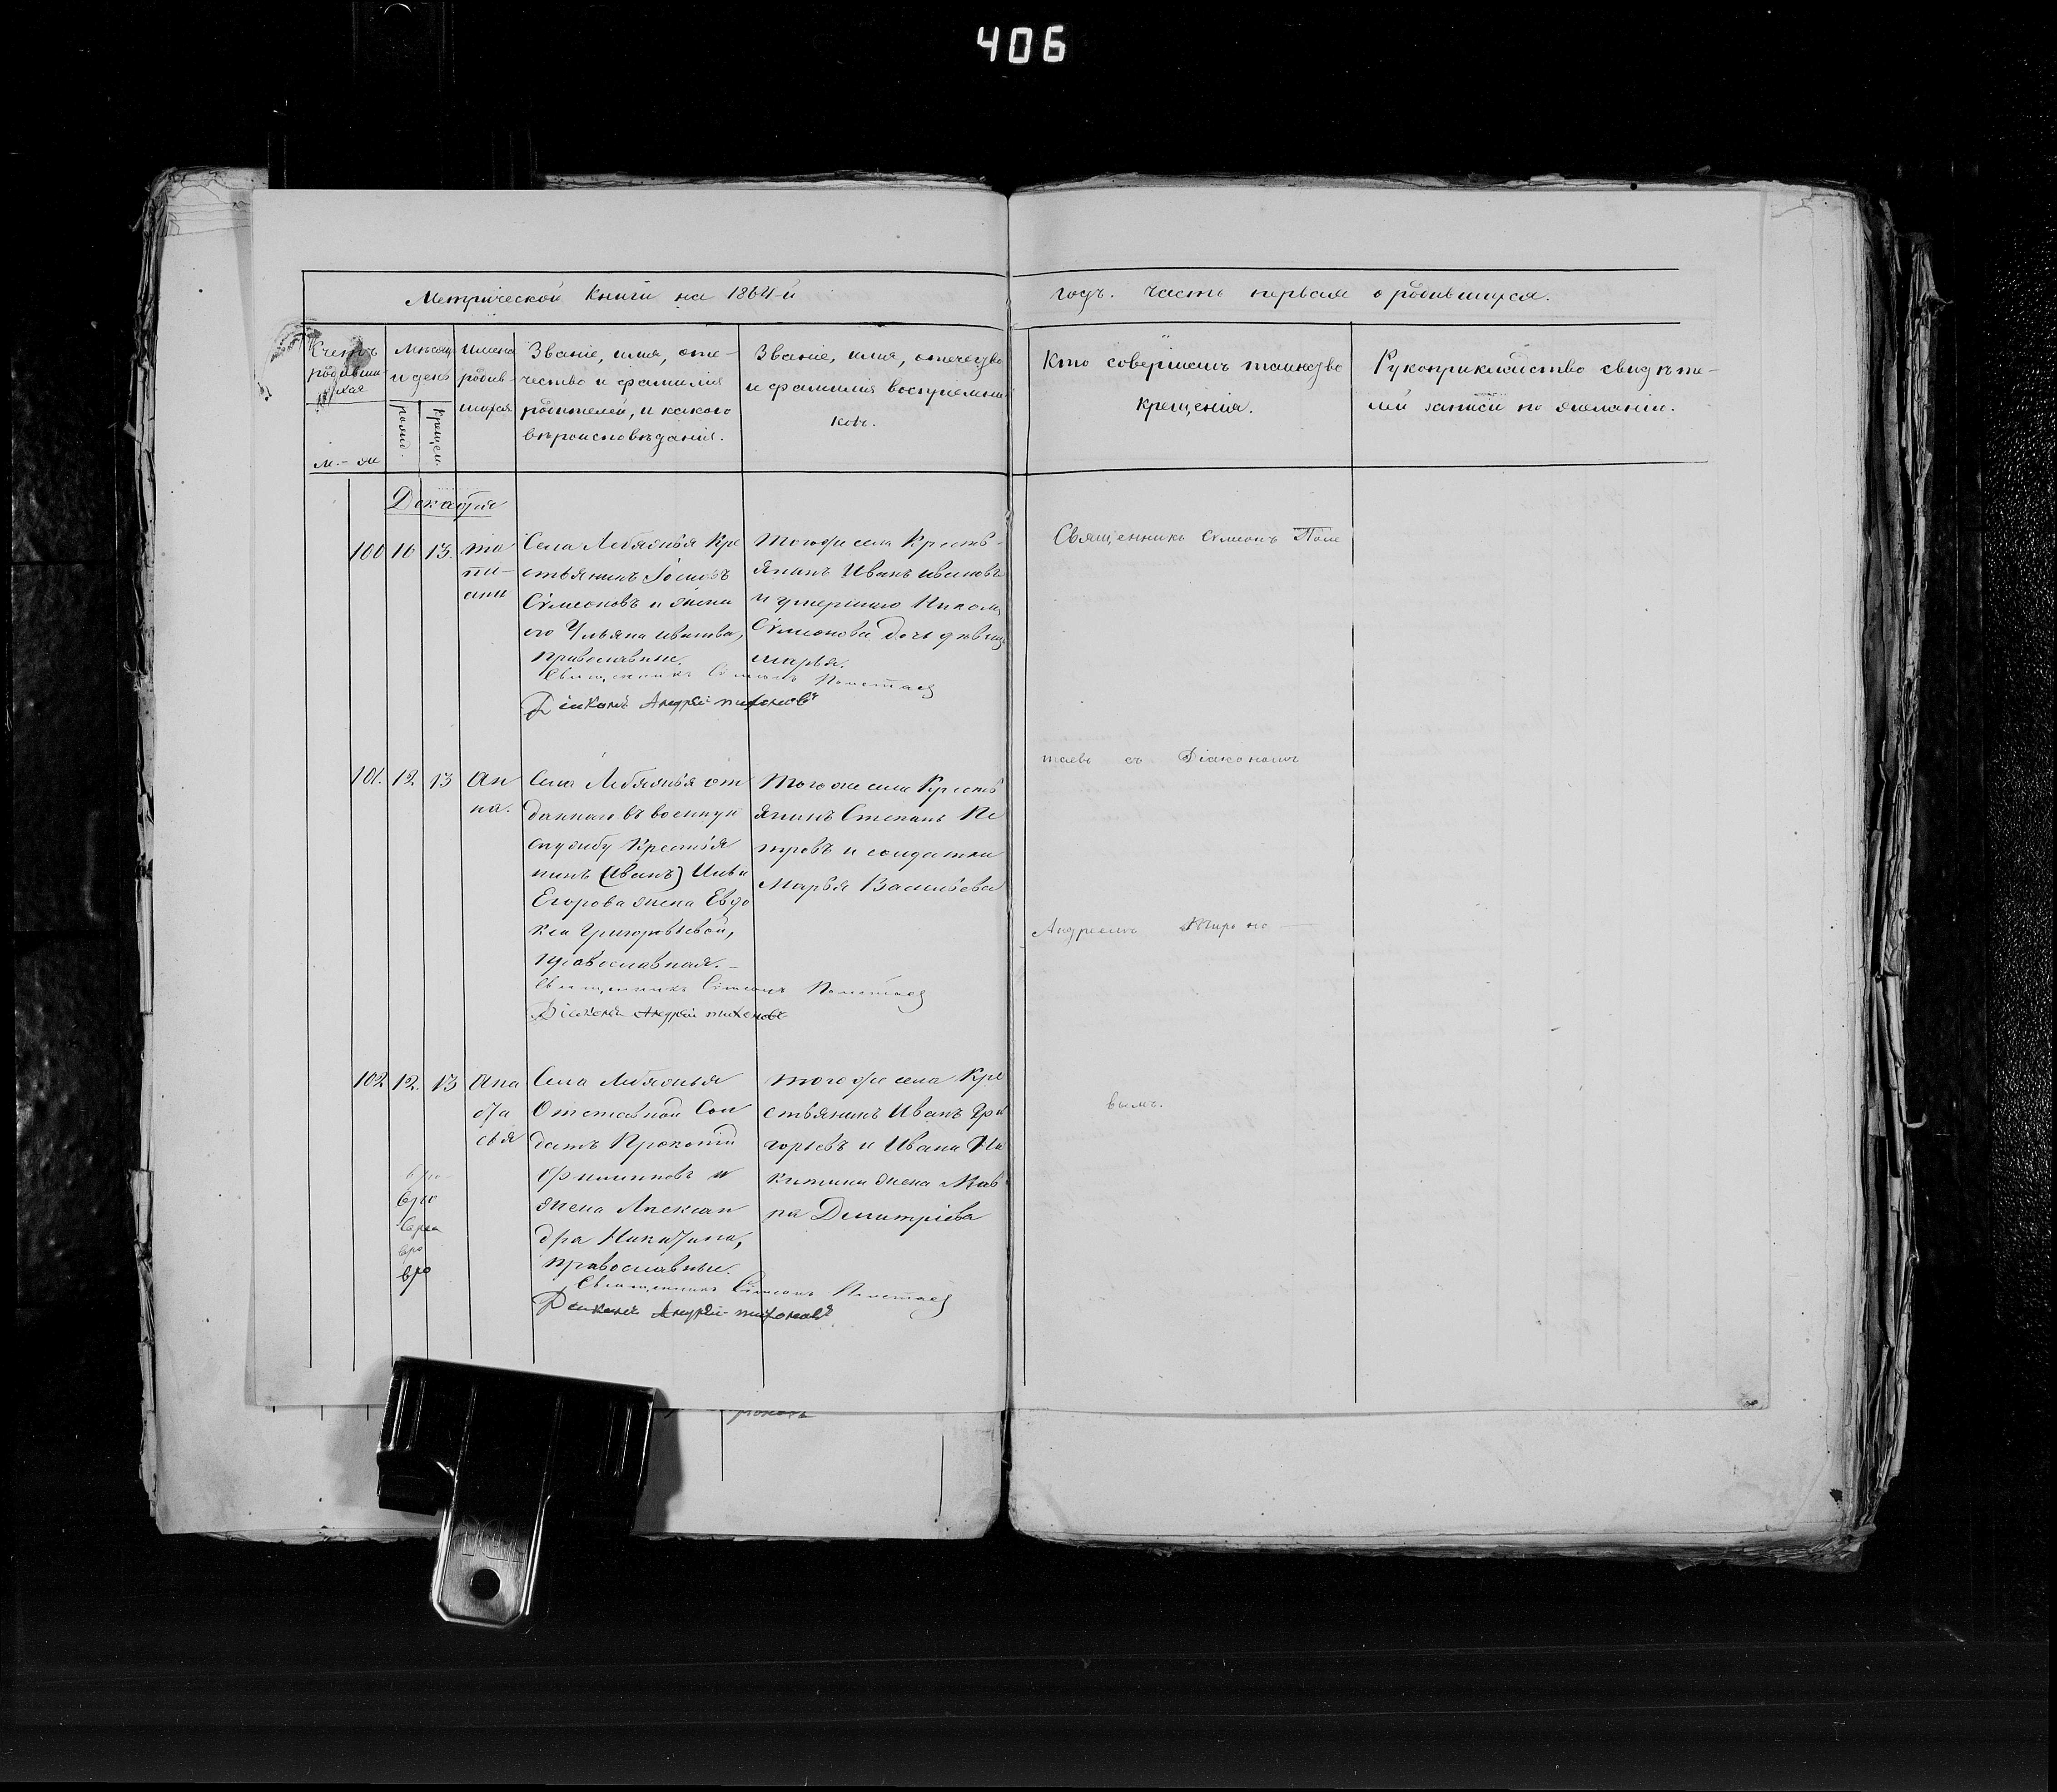 406
Метрической книги на 1864-й годъ. Часть первая о родившихся.
Счетъ родившихся
м. – ж
Мѣсяцъ и день
рожд.
крещен.
Имена родившихся.
Званіе, имя, отечество и фамилія родителей, и какого вѣроисповѣданія.
Званіе, имя, отечество и фамилія воспріемниковъ.
Кто совершилъ таинство крещенія.
Рукоприкладство свидѣтелей записи по желанію.
Декабря
100 10 13.
Села Лебяжья Кре
стьянинъ Іосифъ
Сѵмеоновъ и жена
его Ульяна Иванова,
православные.
Священникъ Симеонъ
Діаконъ Андрей
Того же села Кресть-
янинъ Иванъ Ивановъ
и умершаго Никол
Сѵмеонова дочь девица
Марья.
Священникъ Сѵмеонъ Поле
101. 12 13 Ан
на.
Села Лебяжья от
даннаго въ военную
службу Крестья
нинъ (Иванъ) Ильи
Егорова жена Евдо
кея Григорьевой,
православная.
Священникъ Симеонъ
Діаконъ Андрей
Того же села Кресть
янинъ Степанъ Пе
тровъ и солдатка
Марья Васильева
таевъ съ Діакономъ
Андреемъ
102 12. 13 Ана
ста
сья
Села Лебяжья
Отставной Сол
датъ Прокопій
Филиповъ и
жена Алексан
дра Никитина,
православные.
Священникъ Симеонъ
Діаконъ Андрей
того же села Кре
стьянинъ Иванъ Гри
горьевъ и Ивана Ни
китина жена Мав
ра Димитріева
вымъ.